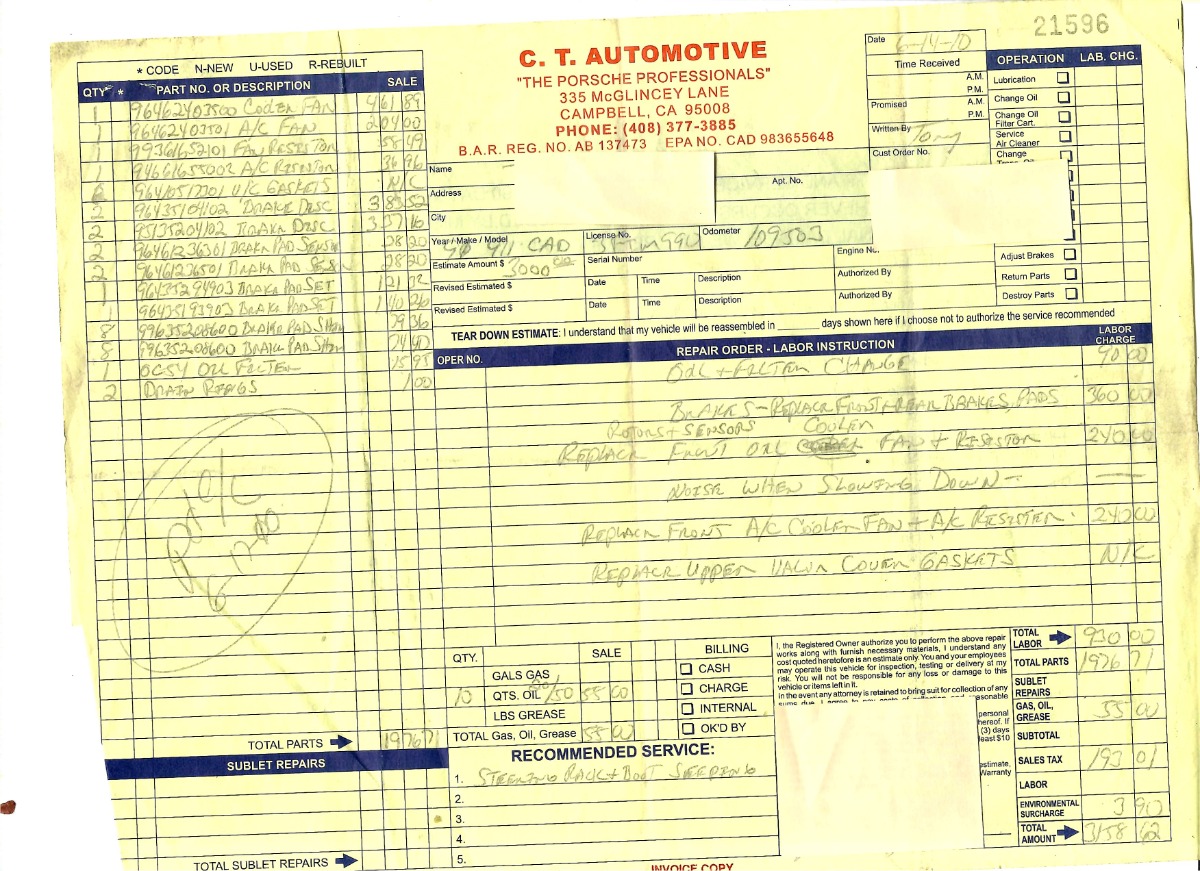 21596
* CODE N-NEW U-USED R-REBUILT
QTY * PART NO. OR DESCRIPTION SALE
1 96462403500 COOLER FAN 461 89
1 96462403501 A/C FAN 204 00
1 99361652101 FAN RESISTOR 58 49
1 94661655002 A/C RESISTOR 36 96
6 GASKETS N/C
2 96435104102 BRAKE DISC 383 52
2 95135204102 BRAKE DISC 337 16
2 96461236301 BRAKE PAD SENSR 28 20
2 96461236501 BRAKE PAD SENS 28 20
1 96435294903 BRAKE PAD SET 121 32
1 96435193903 BRAKE PAD SET 140 26
8 99635208600 BRAKE PAD SHIM 36
8 99635208600 BRAKE PAD SHIM
1 OC54 OIL FILTER 15 95
2 DRAIN RINGS 1 00
TOTAL PARTS 1976 71
SUBLET REPAIRS
TOTAL SUBLET REPAIRS
C. T. AUTOMOTIVE
"THE PORSCHE PROFESSIONALS"
335 McGLINCEY LANE
CAMPBELL, CA 95008
PHONE: (408) 377-3885
B.A.R. REG. NO. AB 137473 EPA NO. CAD 983655648
Date 6-14-10
Time Received
A.M.
P.M.
Promised A.M.
P.M.
Written By Tony
Cust Order No.
OPERATION LAB. CHG.
Lubrication
Change Oil
Change Oil
Filter Cart.
Service
Air Cleaner
Change
Adjust Brakes
Return Parts
Destroy Parts
Name
Address Apt. No.
City
Year / Make / Model 911 CAB License No. Odometer 109503
Estimate Amount $ 3000 Serial Number Engine No.
Revised Estimated $ Date Time Description Authorized By
Revised Estimated $ Date Time Description Authorized By
TEAR DOWN ESTIMATE: I understand that my vehicle will be reassembled in ______ days shown here if I choose not to authorize the service recommended
OPER NO. REPAIR ORDER - LABOR INSTRUCTION LABOR CHARGE
OIL + FILTER CHANGE 90 00
BRAKES - REPLACE FRONT + REAR BRAKES, PADS 360 00
ROTORS + SENSORS COOLER
REPLACE FRONT OIL FAN + RESISTOR 240 00
NOISE WHEN SLOWING DOWN -
REPLACE FRONT A/C COOLER FAN + A/C RESISTER 240 00
REPLACE UPPER VALVE COVER GASKETS N/C
QTY. SALE
GALS GAS
10 QTS. OIL 20/50 55 00
LBS GREASE
TOTAL Gas, Oil, Grease 55 00
BILLING
CASH
CHARGE
INTERNAL
OK'D BY
I, the Registered Owner authorize you to perform the above repair
works along with furnish necessary materials, I understand any
cost quoted heretofore is an estimate only. You and your employees
may operate this vehicle for inspection, testing or delivery at my
risk. You will not be responsible for any loss or damage to this
vehicle or items left in it.
in the event any attorney is retained to bring suit for collection of any
personal
hereof. If
(3) days
least $10
estimate.
Warranty
TOTAL LABOR 930 00
TOTAL PARTS 1976 71
SUBLET REPAIRS
GAS, OIL, GREASE 55 00
SUBTOTAL
SALES TAX 193 01
LABOR
ENVIRONMENTAL SURCHARGE 3 90
TOTAL AMOUNT 3158 62
RECOMMENDED SERVICE:
1. STEERING RACK + BOOT SEEPING
2.
3.
4.
5.
INVOICE COPY